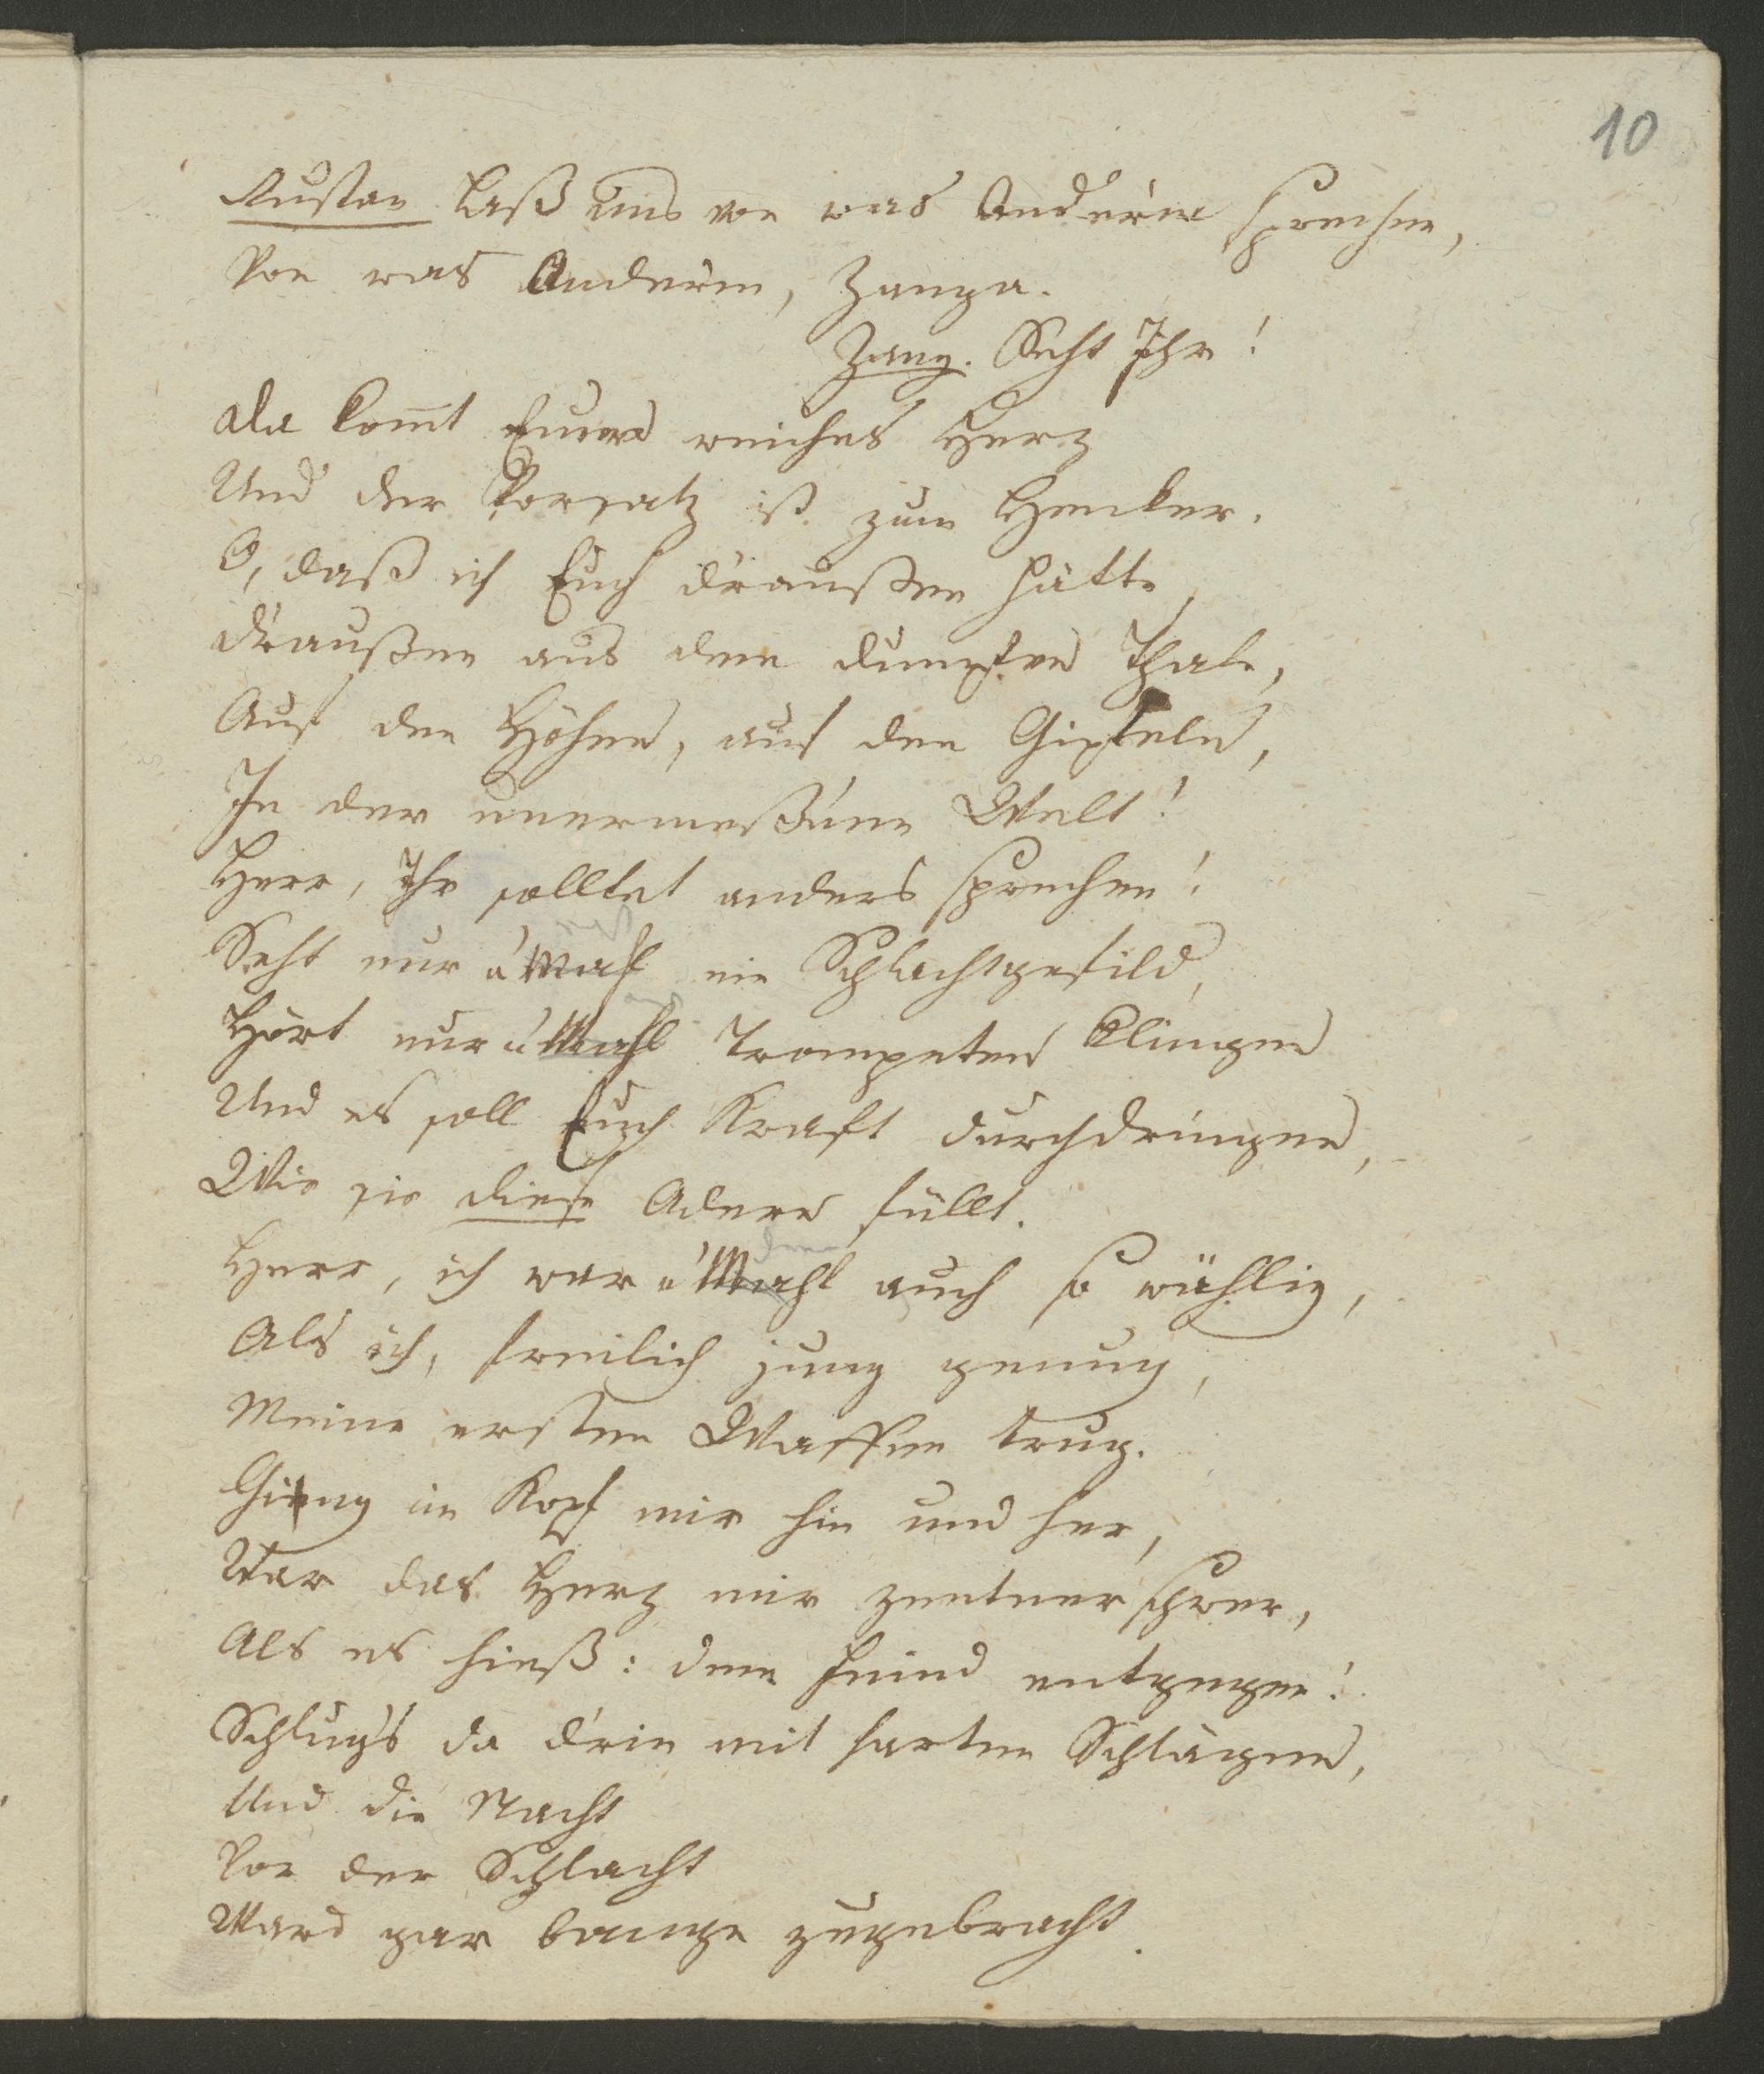 10
Rustan Laß uns von was Anderm sprechen,
Von was Anderm, Zanga.
Zang. Seht Ihr!
Da kom̄t Euer weiches Herz
Und der Vorsatz ist zum Henker.
O, daß ich Euch draußen hätte,
Draußen aus dem dumpfen Thale,
Auf den Höhen, auf den Gipfeln,
In der unermeß'nen Welt!
Herr, Ihr solltet anders sprechen!
Seht nur a'Mahl ein Schlachtgefild,
Hört nur a'Mahl Trompeten klingen
Und es soll Euch Kraft durchdringen,
Wie sie diese Adern füllt.
Herr, ich war a'Mahl auch so wählig,
Als ich, freilich jung genug,
Meine ersten Waffen trug.
Gieng im Kopf mir hin und her,
War das Herz mir zentnerschwer,
Als es hieß: dem Feind entgegen!
Schlug's da d'rin mit harten Schlägen,
Und die Nacht
Vor der Schlacht
Ward gar bange zugebracht.